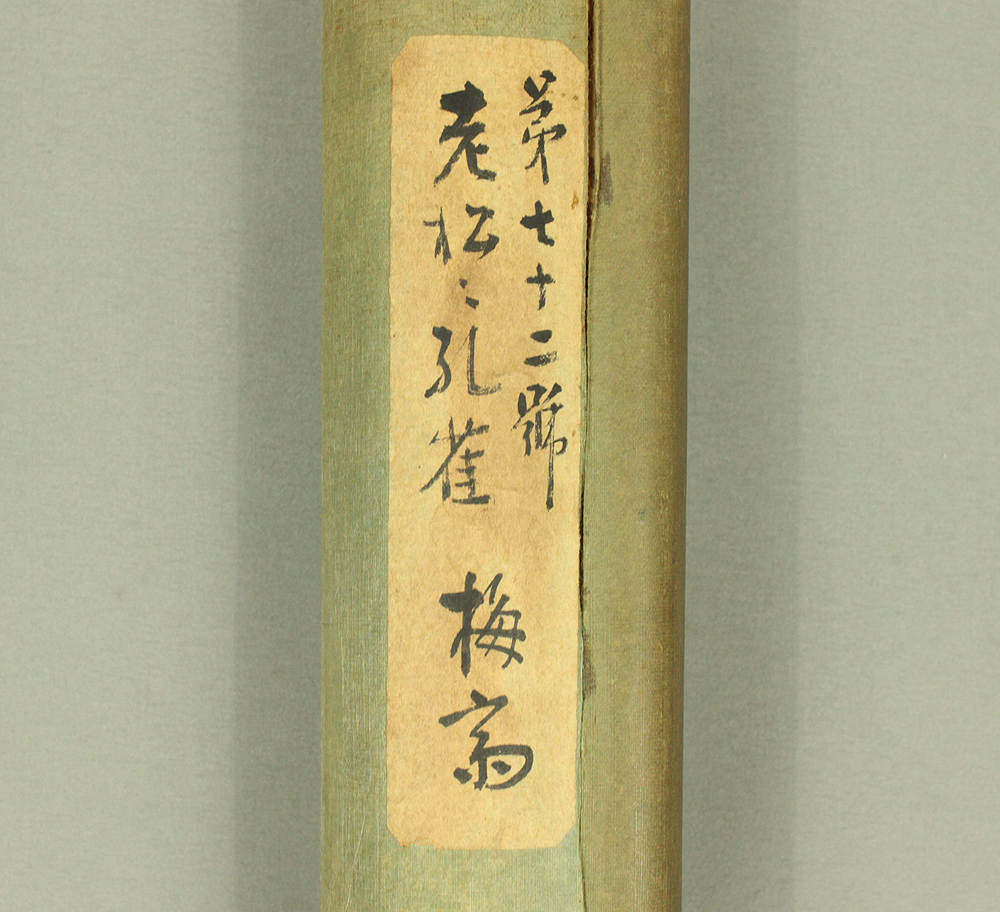 第七十二號
老松ニ孔雀 梅斎